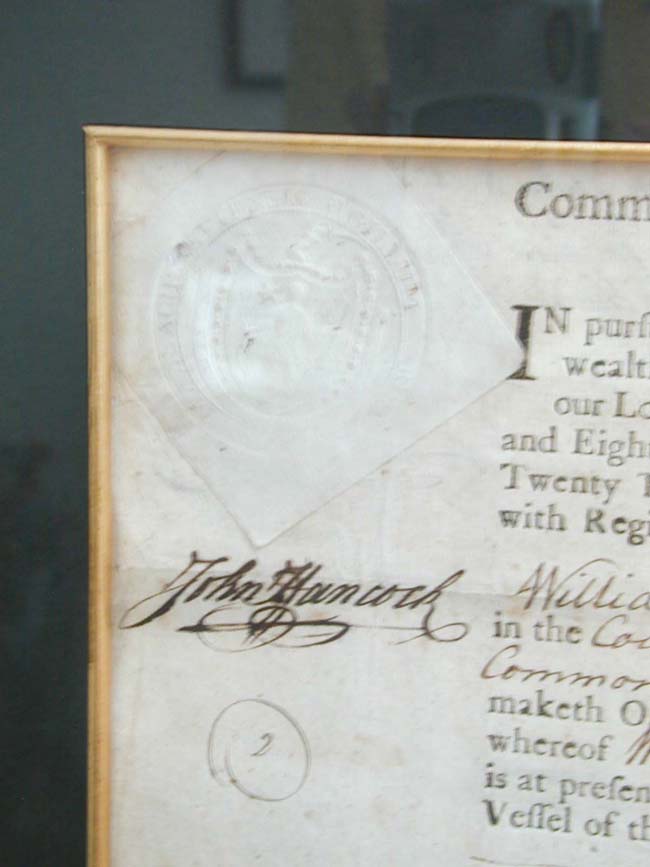 Comm
IN purſ
wealt
our Lo
and Eigh
Twenty T
with Regi
John Hancock
Willia
in the Co
Common
maketh O
2
whereof
is at preſen
Veſſel of th